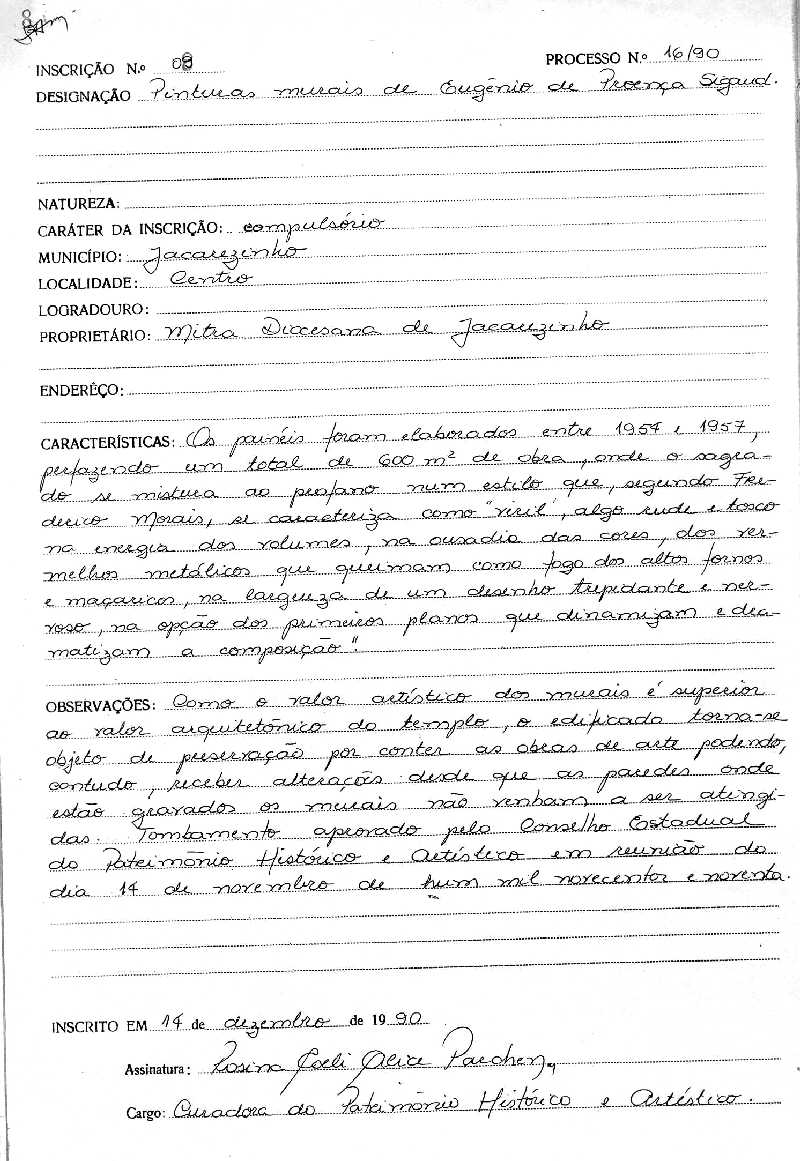 INSCRIÇÃO N.º 08 PROCESSO N.º 16/90
DESIGNAÇÃO Pinturas murais de Eugênio de Proença Sigaud.
NATUREZA:
CARÁTER DA INSCRIÇÃO: compulsório
MUNICÍPIO: Jacarezinho
LOCALIDADE: Centro
LOGRADOURO:
PROPRIETÁRIO: Mitra Diocesana de Jacarezinho
ENDERÊÇO:
CARACTERÍSTICAS: Os painéis foram elaborados entre 1954 e 1957,
perfazendo um total de 600 m² de obra, onde o sagra-
do se mistura ao profano num estilo que, segundo Fre-
derico Morais, se caracteriza como "viril", algo rude e tosco
na energia dos volumes, na ousadia das cores, dos ver-
melhos metálicos que queimam como fogo dos altos fornos
e maçaricos, na largueza de um desenho trepidante e ner-
voso, na opção dos primeiros planos que dinamizam e dra-
matizam a composição".
OBSERVAÇÕES: Como o valor artístico dos murais é superior
ao valor arquitetônico do templo, o edificado torna-se
objeto de preservação por conter as obras de arte podendo,
contudo, receber alterações desde que as paredes onde
estão gravados os murais não venham a ser atingi-
das. Tombamento aprovado pelo Conselho Estadual
do Patrimônio Histórico e Artístico em reunião do
dia 14 de novembro de hum mil novecentos e noventa.
INSCRITO EM 14 de dezembro de 19 90
Assinatura: Rosina Coeli Alice Parchen
Cargo: Curadora do Patrimônio Histórico e Artístico.